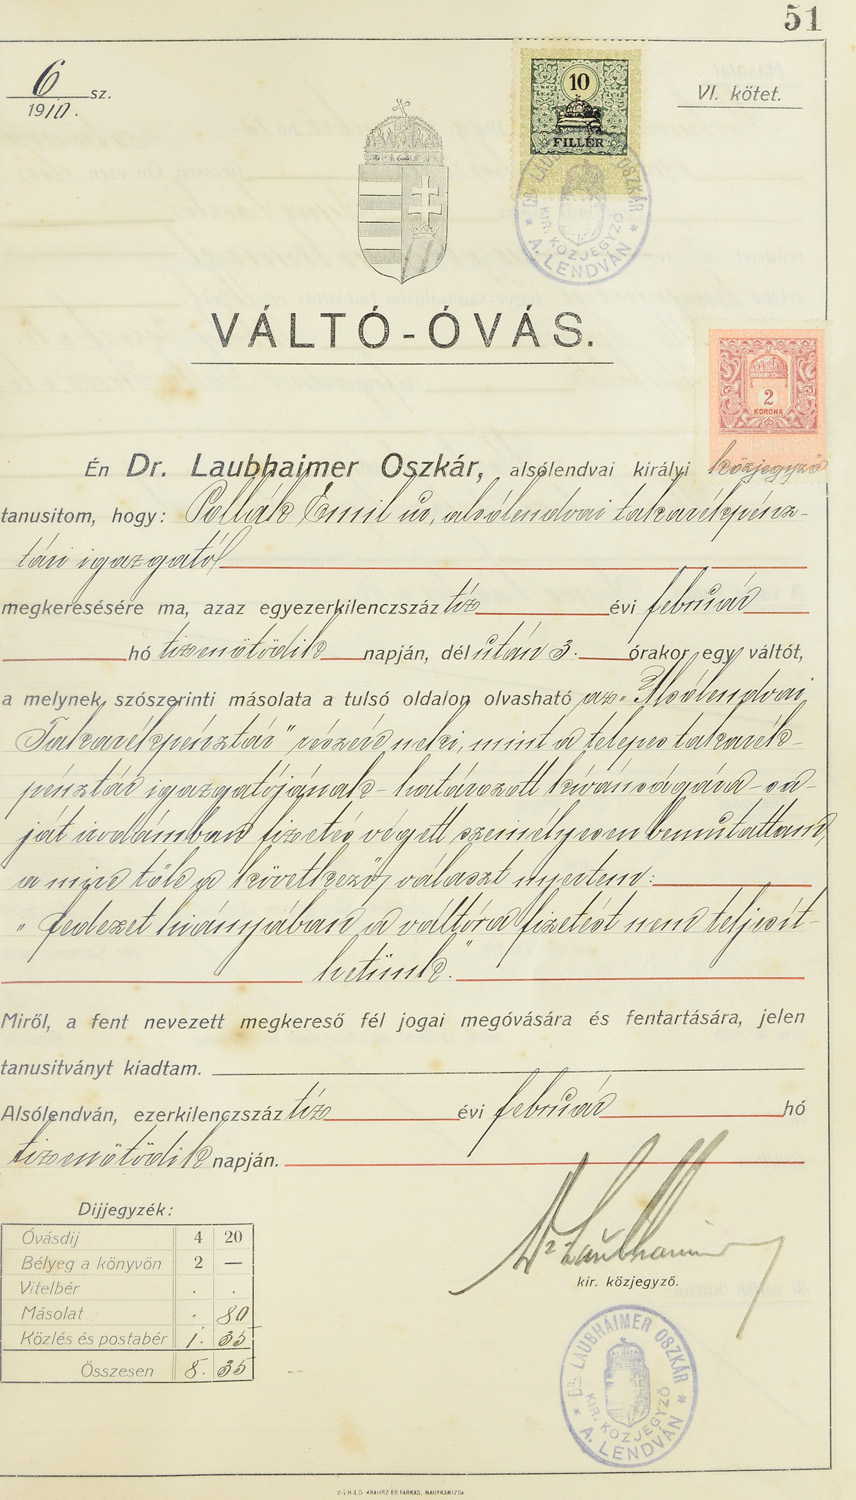 51
6 sz.
1910.
VI. kötet.
10
FILLÉR
Dr. LAUBHAIMER OSZKÁR
KIR. KÖZJEGYZŐ
A. LENDVÁN
VÁLTÓ-ÓVÁS.
2
KORONA
Én Dr. Laubhaimer Oszkár, alsólendvai királyi közjegyző
tanusitom, hogy: Pollák Emil úr, alsólendvai takarékpénz-
tári igazgatól
megkeresésére ma, azaz egyezerkilenczszáz tíz évi február
hó tizenötödik napján, délután 3. órakor egy váltót,
a melynek szószerinti másolata a tulsó oldalon olvasható az „Alsólendvai
Takarékpénztár" részére neki, mint a telepes takarék-
pénztár igazgatójának - határozott kívánságára - sa-
ját irodámban fizetés végett személyesen bemutattam,
a mire tőle a következő választ nyertem:
„fedezet hiányában a váltóra fizetést nem teljesít-
hetünk."
Miről, a fent nevezett megkereső fél jogai megóvására és fentartására, jelen
tanusitványt kiadtam.
Alsólendván, ezerkilenczszáz tíz évi február hó
tizenötödik napján.
Dr Laubhaimer
kir. közjegyző.
Dijjegyzék:
Óvásdij 4 20
Bélyeg a könyvön 2 —
Vitelbér . .
Másolat . 80
Közlés és postabér 1. 35
Összesen 8. 35
Dr. LAUBHAIMER OSZKÁR
KIR. KÖZJEGYZŐ
A. LENDVÁN
KRAUSZ ÉS FARKAS, NAGYKANIZSA